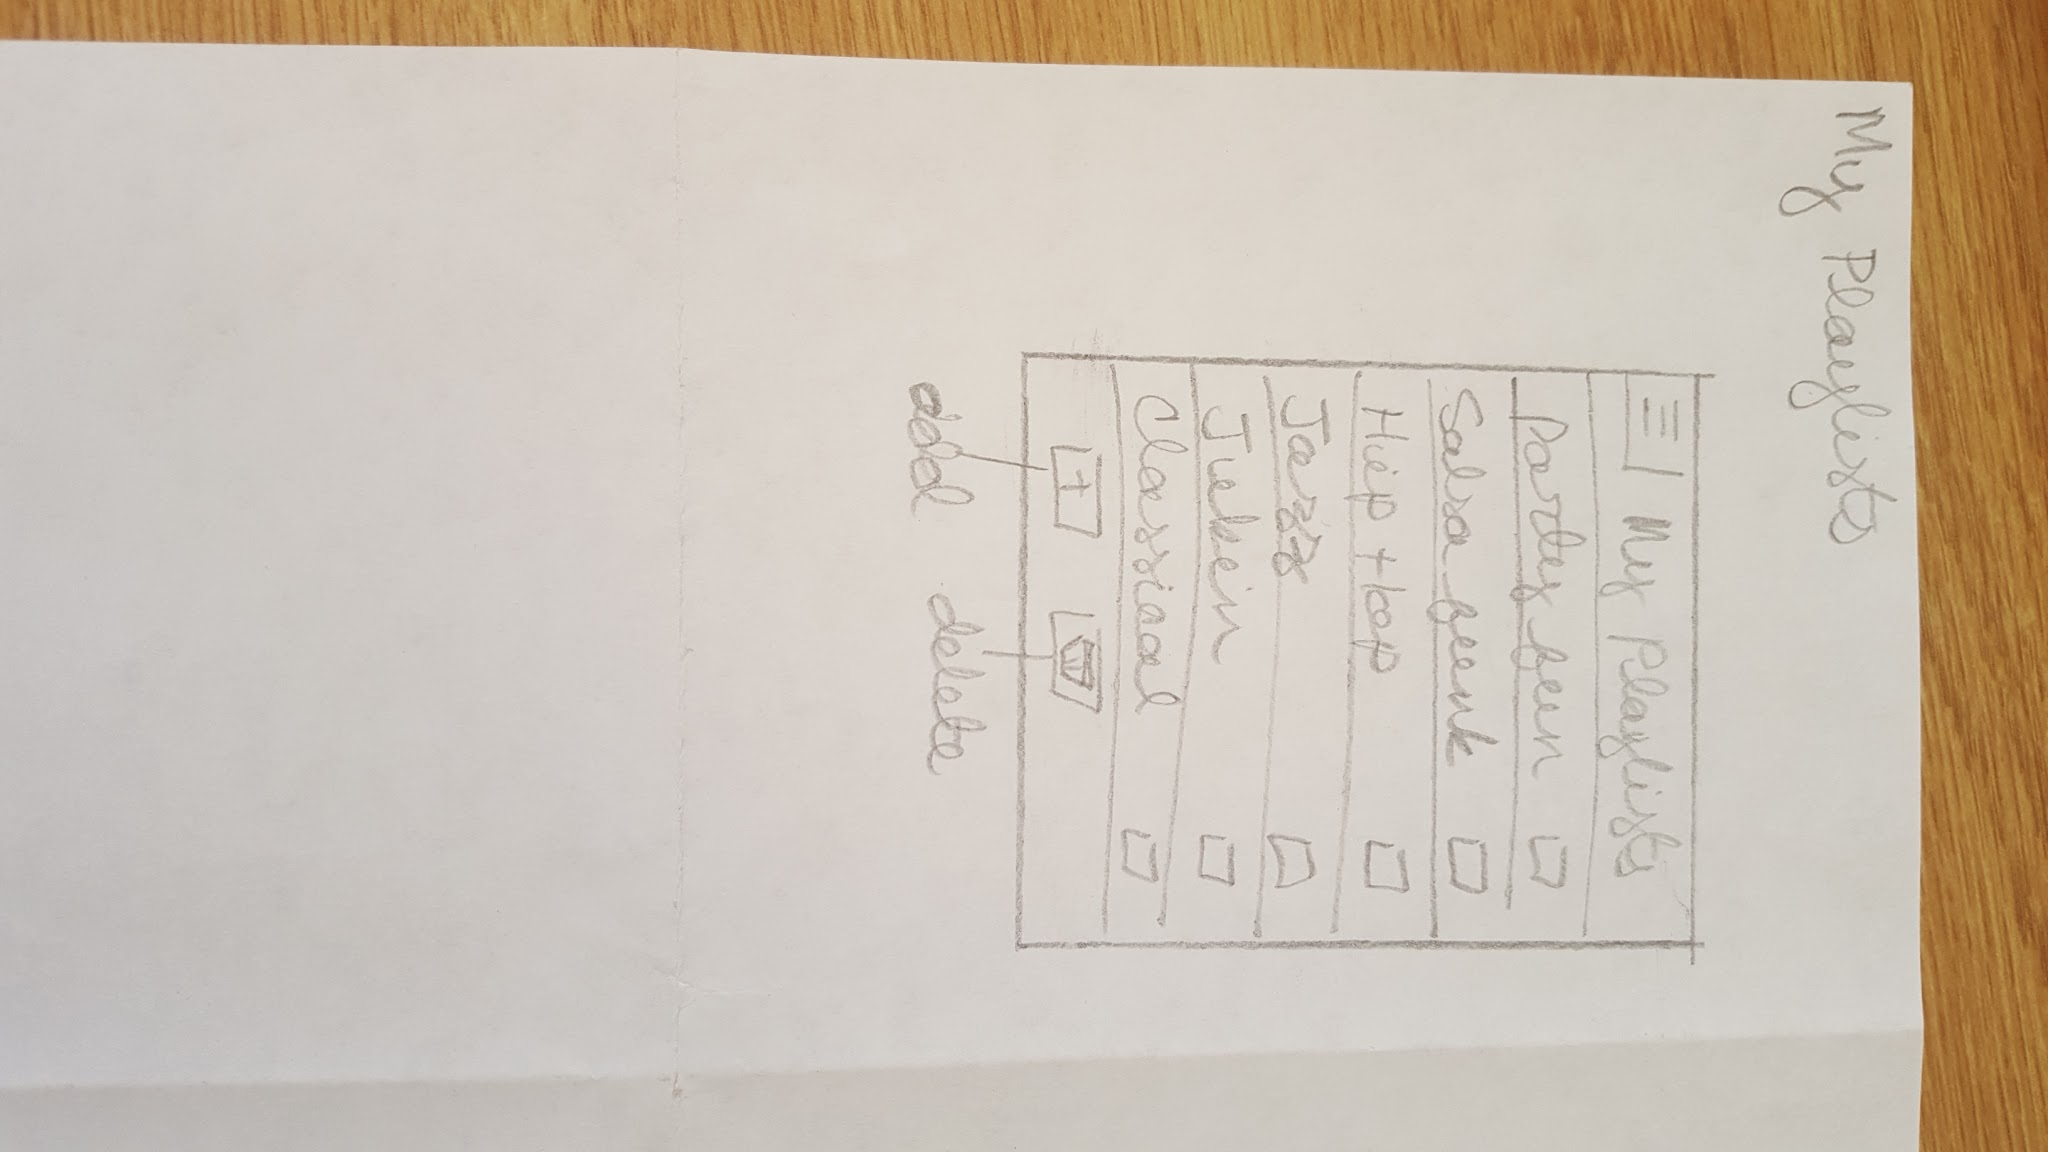 My Playlists
My Playlists
Party fun
Salsa funk
Hip Hop
Jazz
Classical
add delete